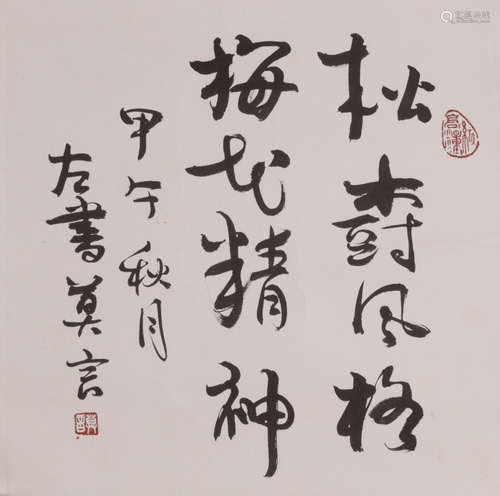 松树风格
梅花精神
甲午秋月
左书莫言